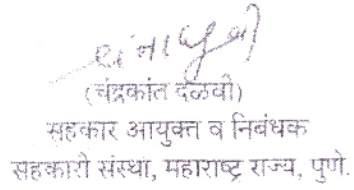 (चंद्रकांत दळवी)
सहकार आयुक्त व निबंधक
सहकारी संस्था, महाराष्ट्र राज्य, पुणे.